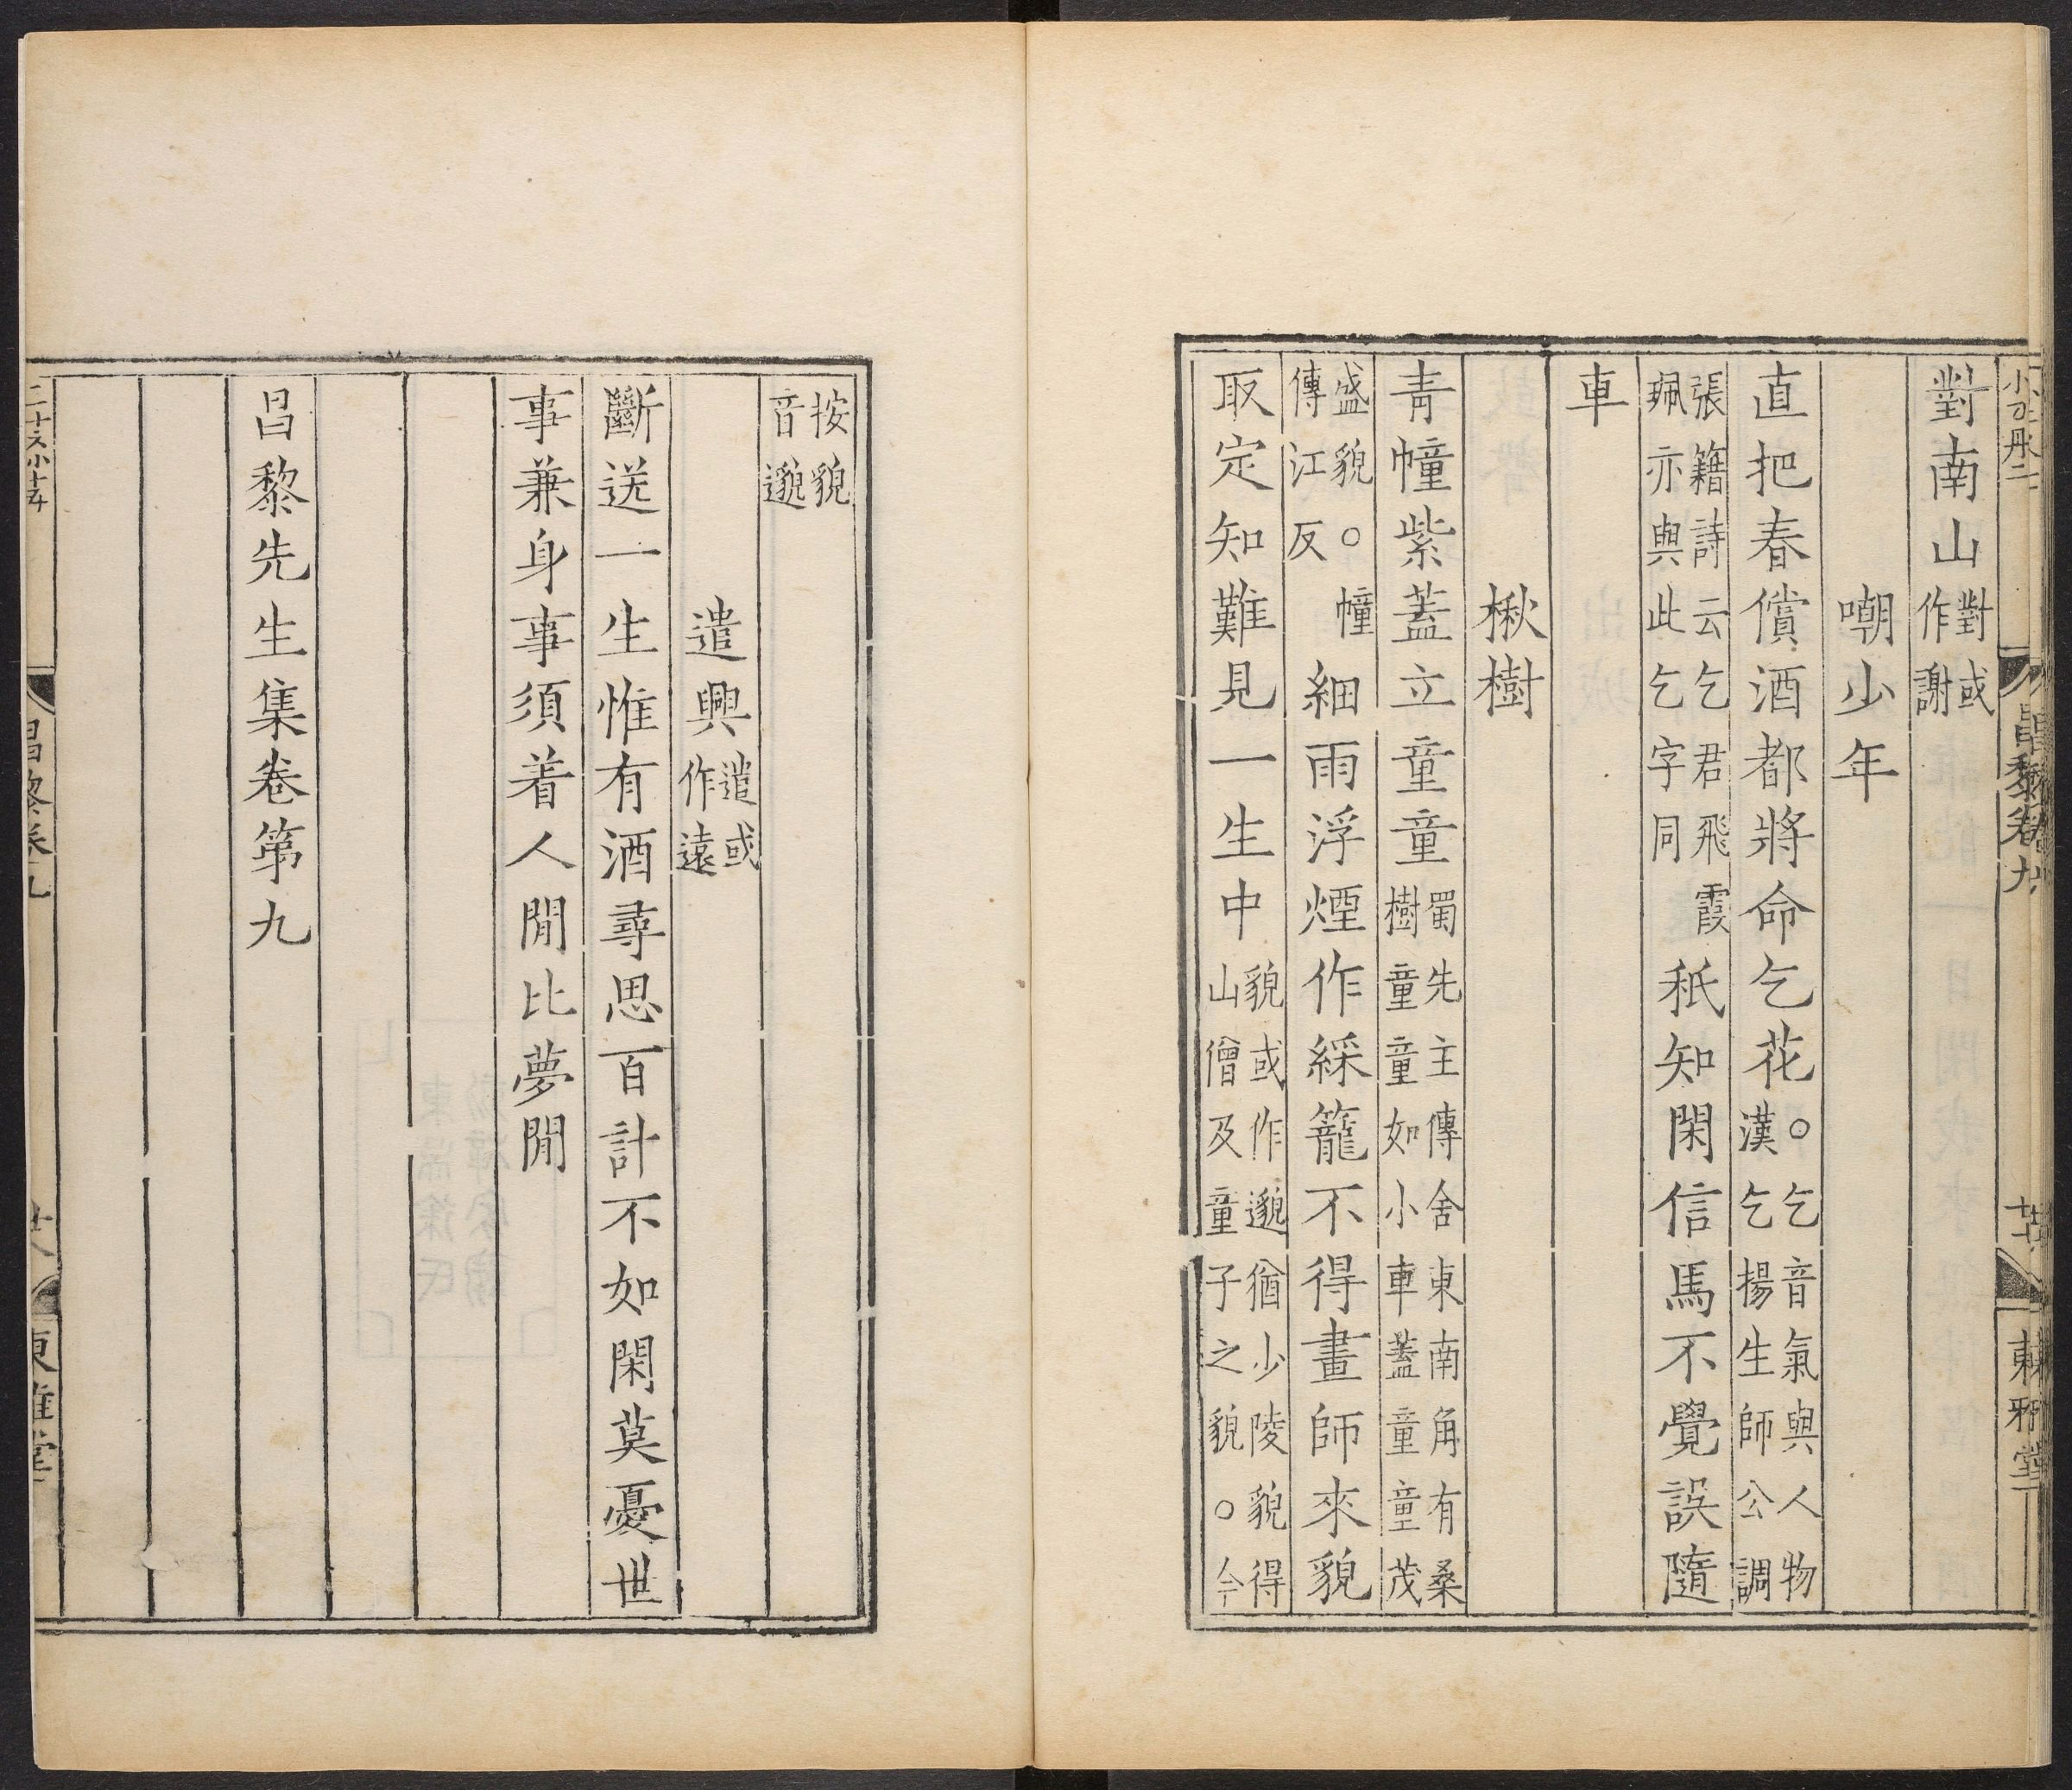 對南山對或作謝
嘲少年
直把春償酒都將命乞花○乞音氣與人物漢乞乞揚生師公調
張籍詩云乞君飛霞珮亦與此乞字同秖知閑信馬不覺誤隨
車
楸樹
青幢紫蓋立童童蜀先主傳舍東南角有桑樹童童如小車蓋童童茂
盛貌○幢傳江反細雨浮煙作綵籠不得畫師來貌
取定知難見一生中貌或作邈猶少陵貌得山僧及童子之貌○今
昌黎卷九
東雅堂
按貌貌音邈
遣興遣或作遠
斷送一生惟有酒尋思百計不如閑莫憂世
事兼身事須着人間比夢間
昌黎先生集卷第九
昌黎卷九
廿八
東雅堂